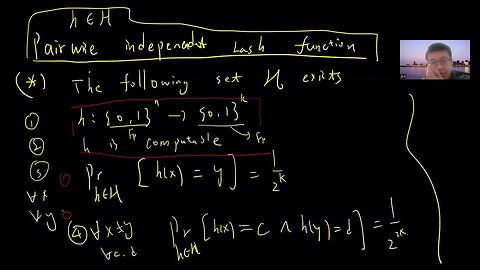 h ∈ H
Pairwise independent hash function
(*) The following set H exists
① h : {0,1}^n → {0,1}^k
Fp Fp
② h is computable
③ Pr_{h∈H} [h(x) = y] = 1/2^k
∀x
∀y
④ ∀x≠y Pr_{h∈H} [h(x) = c ∧ h(y) = d] = 1/2^{2k}
∀c.d